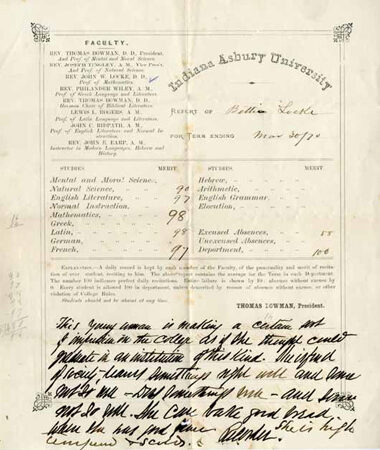 FACULTY.
REV. THOMAS BOWMAN, D. D., President,
And Prof. of Mental and Moral Science.
REV. JOSEPH TINGLEY, A. M., Vice Pres't,
And Prof. of Natural Science.
REV. JOHN W. LOCKE, D. D.,
Prof. of Mathematics.
REV. PHILANDER WILEY, A. M.,
Prof. of Greek Language and Literature.
REV. THOMAS BOWMAN, D. D.,
Chair of Biblical Literature.
LEWIS L. ROGERS, A. M.,
Prof. of Latin Language and Literature.
JOHN C. RIDPATH, A. M.,
Prof. of English Literature and Normal Instruction.
REV. JOHN E. EARP, A. M.,
Instructor in Modern Languages, Hebrew and History.
Indiana Asbury University
REPORT OF Bettie Locke
FOR TERM ENDING Nov 30/70
STUDIES MERIT STUDIES MERIT
Mental and Moral Science,
Natural Science, 90
English Literature, 97
Normal Instruction,
Mathematics, 98
Greek,
Latin, 98
German,
French, 97
Hebrew,
Arithmetic,
English Grammar,
Elocution,
Excused Absences,
Unexcused Absences,
Department, 100
EXPLANATION.—A daily record is kept by each member of the Faculty, of the punctuality and merit of recitation of ever student reciting to him. The above report contains the average for the Term in each Department.
The number 100 indicates perfect daily recitations. Entire failure is shown by 0; absence without excuse by
Every student is allowed 100 in department, unless diminished by reason of absence without excuse, or other violation of College Rules.
Students should not be absent at any time.
THOMAS BOWMAN, President.
This young woman is making a certain sort
of impression in the college as if she thought she could
graduate in an institution of this kind. She is
and some
not so well - Does some things well - and some
not so well. She can bake good bread
when she was
She is high